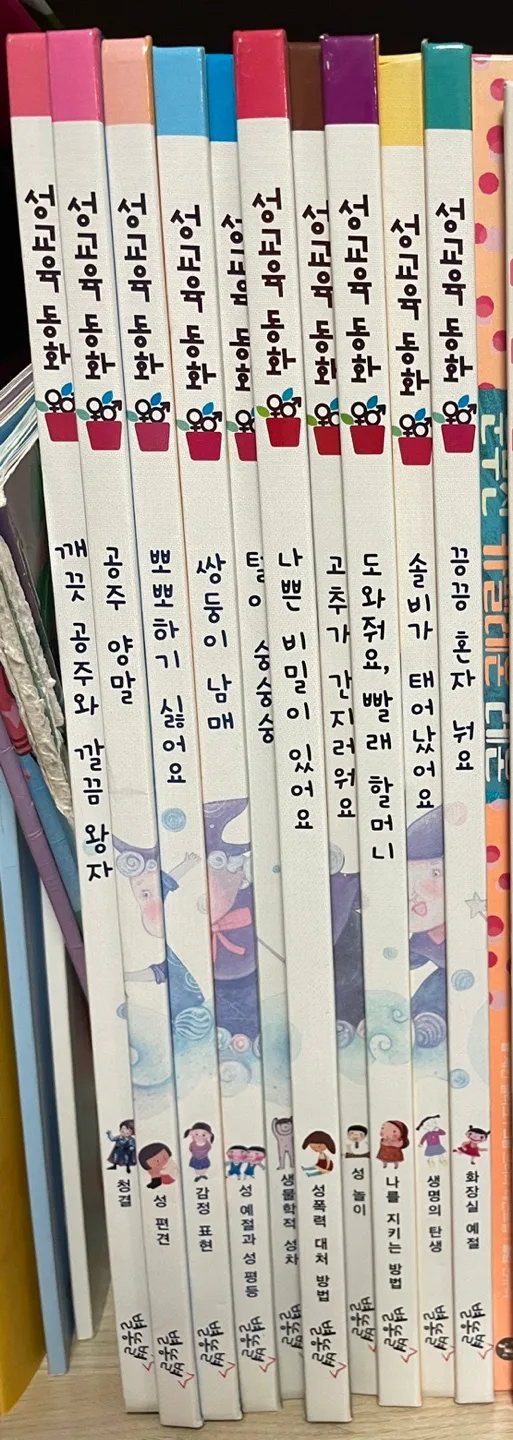 성교육 동화
깨끗 공주와 깔끔 왕자
청결
별똥별
성교육 동화
공주 양말
성 편견
별똥별
성교육 동화
뽀뽀하기 싫어요
감정 표현
별똥별
성교육 동화
쌍둥이 남매
성 예절과 성 평등
별똥별
성교육 동화
털이 숭숭숭
생물학적 성차
별똥별
성교육 동화
나쁜 비밀이 있어요
성폭력 대처 방법
별똥별
성교육 동화
고추가 간지러워요
성 놀이
별똥별
성교육 동화
도와줘요, 빨래 할머니
나를 지키는 방법
별똥별
성교육 동화
솔비가 태어났어요
생명의 탄생
별똥별
성교육 동화
끙끙 혼자 눠요
화장실 예절
별똥별